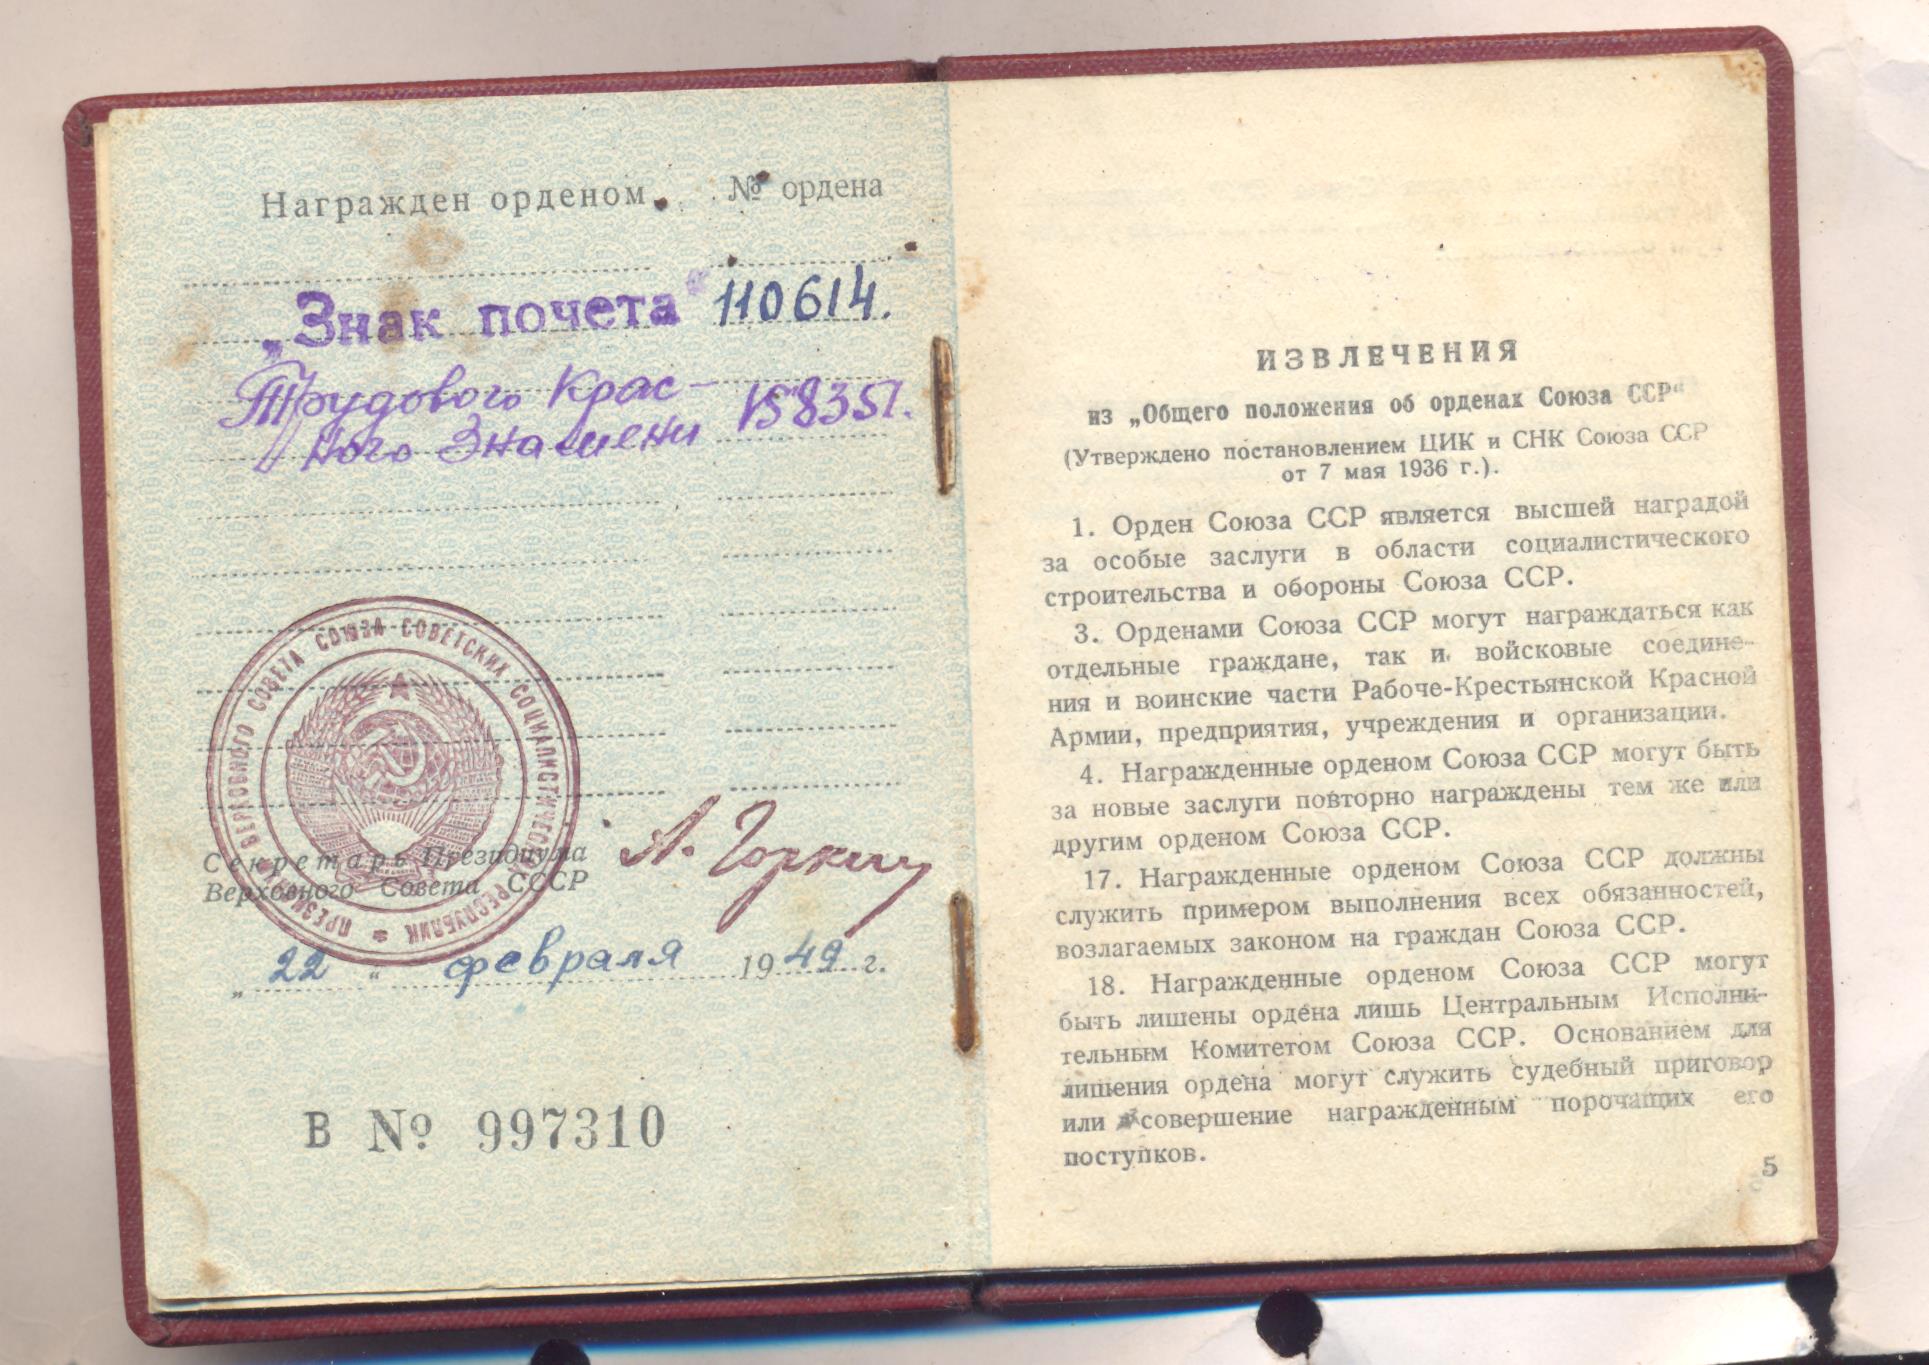 Награжден орденом. № ордена
„Знак почета" 110614.
Трудового Крас-
ного Знамени 158351.
ПРЕЗИДИУМ ВЕРХОВНОГО СОВЕТА СОЮЗА СОВЕТСКИХ СОЦИАЛИСТИЧЕСКИХ РЕСПУБЛИК
Секретарь Президиума
Верховного Совета СССР
А. Горкин
„22" февраля 1949 г.
В № 997310
ИЗВЛЕЧЕНИЯ
из „Общего положения об орденах Союза ССР"
(Утверждено постановлением ЦИК и СНК Союза ССР
от 7 мая 1936 г.).
1. Орден Союза ССР является высшей наградой
за особые заслуги в области социалистического
строительства и обороны Союза ССР.
3. Орденами Союза ССР могут награждаться как
отдельные граждане, так и войсковые соедине-
ния и воинские части Рабоче-Крестьянской Красной
Армии, предприятия, учреждения и организации.
4. Награжденные орденом Союза ССР могут быть
за новые заслуги повторно награждены тем же или
другим орденом Союза ССР.
17. Награжденные орденом Союза ССР должны
служить примером выполнения всех обязанностей,
возлагаемых законом на граждан Союза ССР.
18. Награжденные орденом Союза ССР могут
быть лишены ордена лишь Центральным Исполни-
тельным Комитетом Союза ССР. Основанием для
лишения ордена могут служить судебный приговор
или совершение награжденным порочащих его
поступков.
5